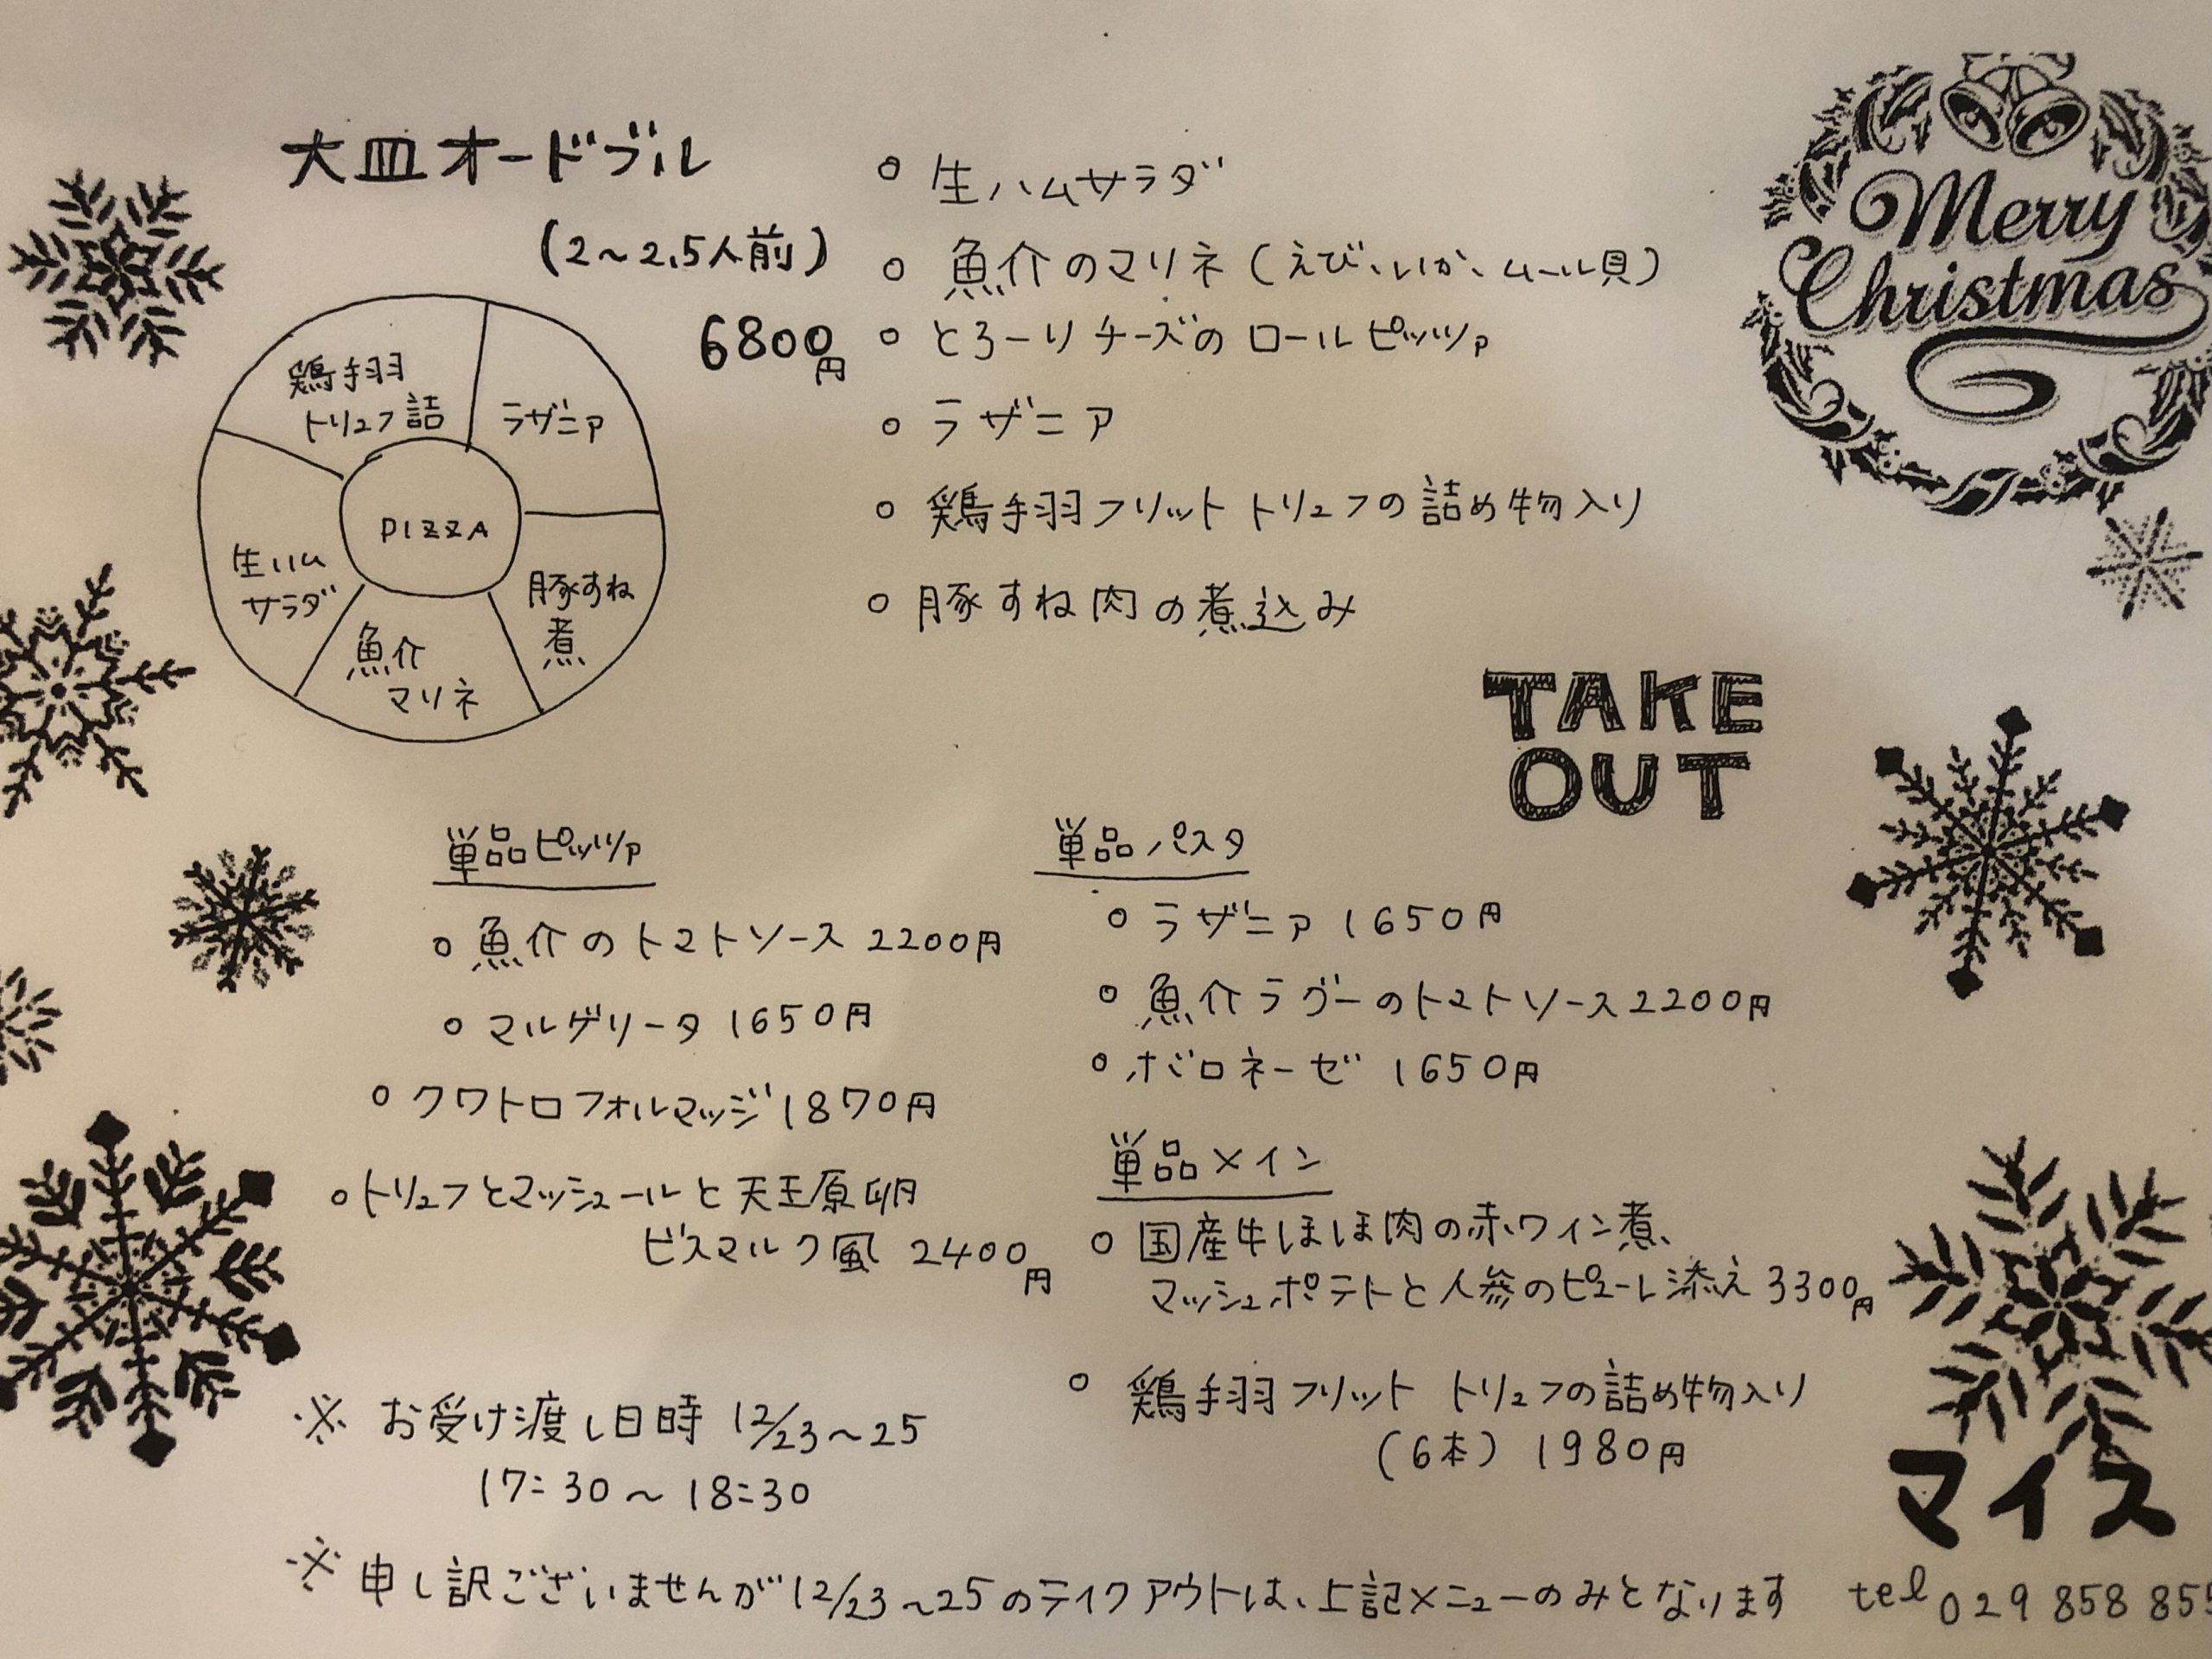 大皿オードブル
(2〜2.5人前)
6800円
鶏手羽
トリュフ詰
ラザニア
PIZZA
生ハム
サラダ
魚介
マリネ
豚すね
煮
○ 生ハムサラダ
○ 魚介のマリネ（えび、いか、ムール貝）
○ とろーりチーズのロールピッツァ
○ ラザニア
○ 鶏手羽フリット トリュフの詰め物入り
○ 豚すね肉の煮込み
Merry
Christmas
TAKE
OUT
単品ピッツァ
○ 魚介のトマトソース 2200円
○ マルゲリータ 1650円
○ クワトロフォルマッジ 1870円
○ トリュフとマッシュールと天王原卵
ビスマルク風 2400円
単品パスタ
○ ラザニア 1650円
○ 魚介ラグーのトマトソース 2200円
○ ボロネーゼ 1650円
単品メイン
○ 国産牛ほほ肉の赤ワイン煮、
マッシュポテトと人参のピューレ添え 3300円
○ 鶏手羽フリット トリュフの詰め物入り
(6本) 1980円
※ お受け渡し日時 12/23〜25
17:30〜18:30
※ 申し訳ございませんが12/23〜25のテイクアウトは、上記メニューのみとなります
マイス
tel 029 858 855